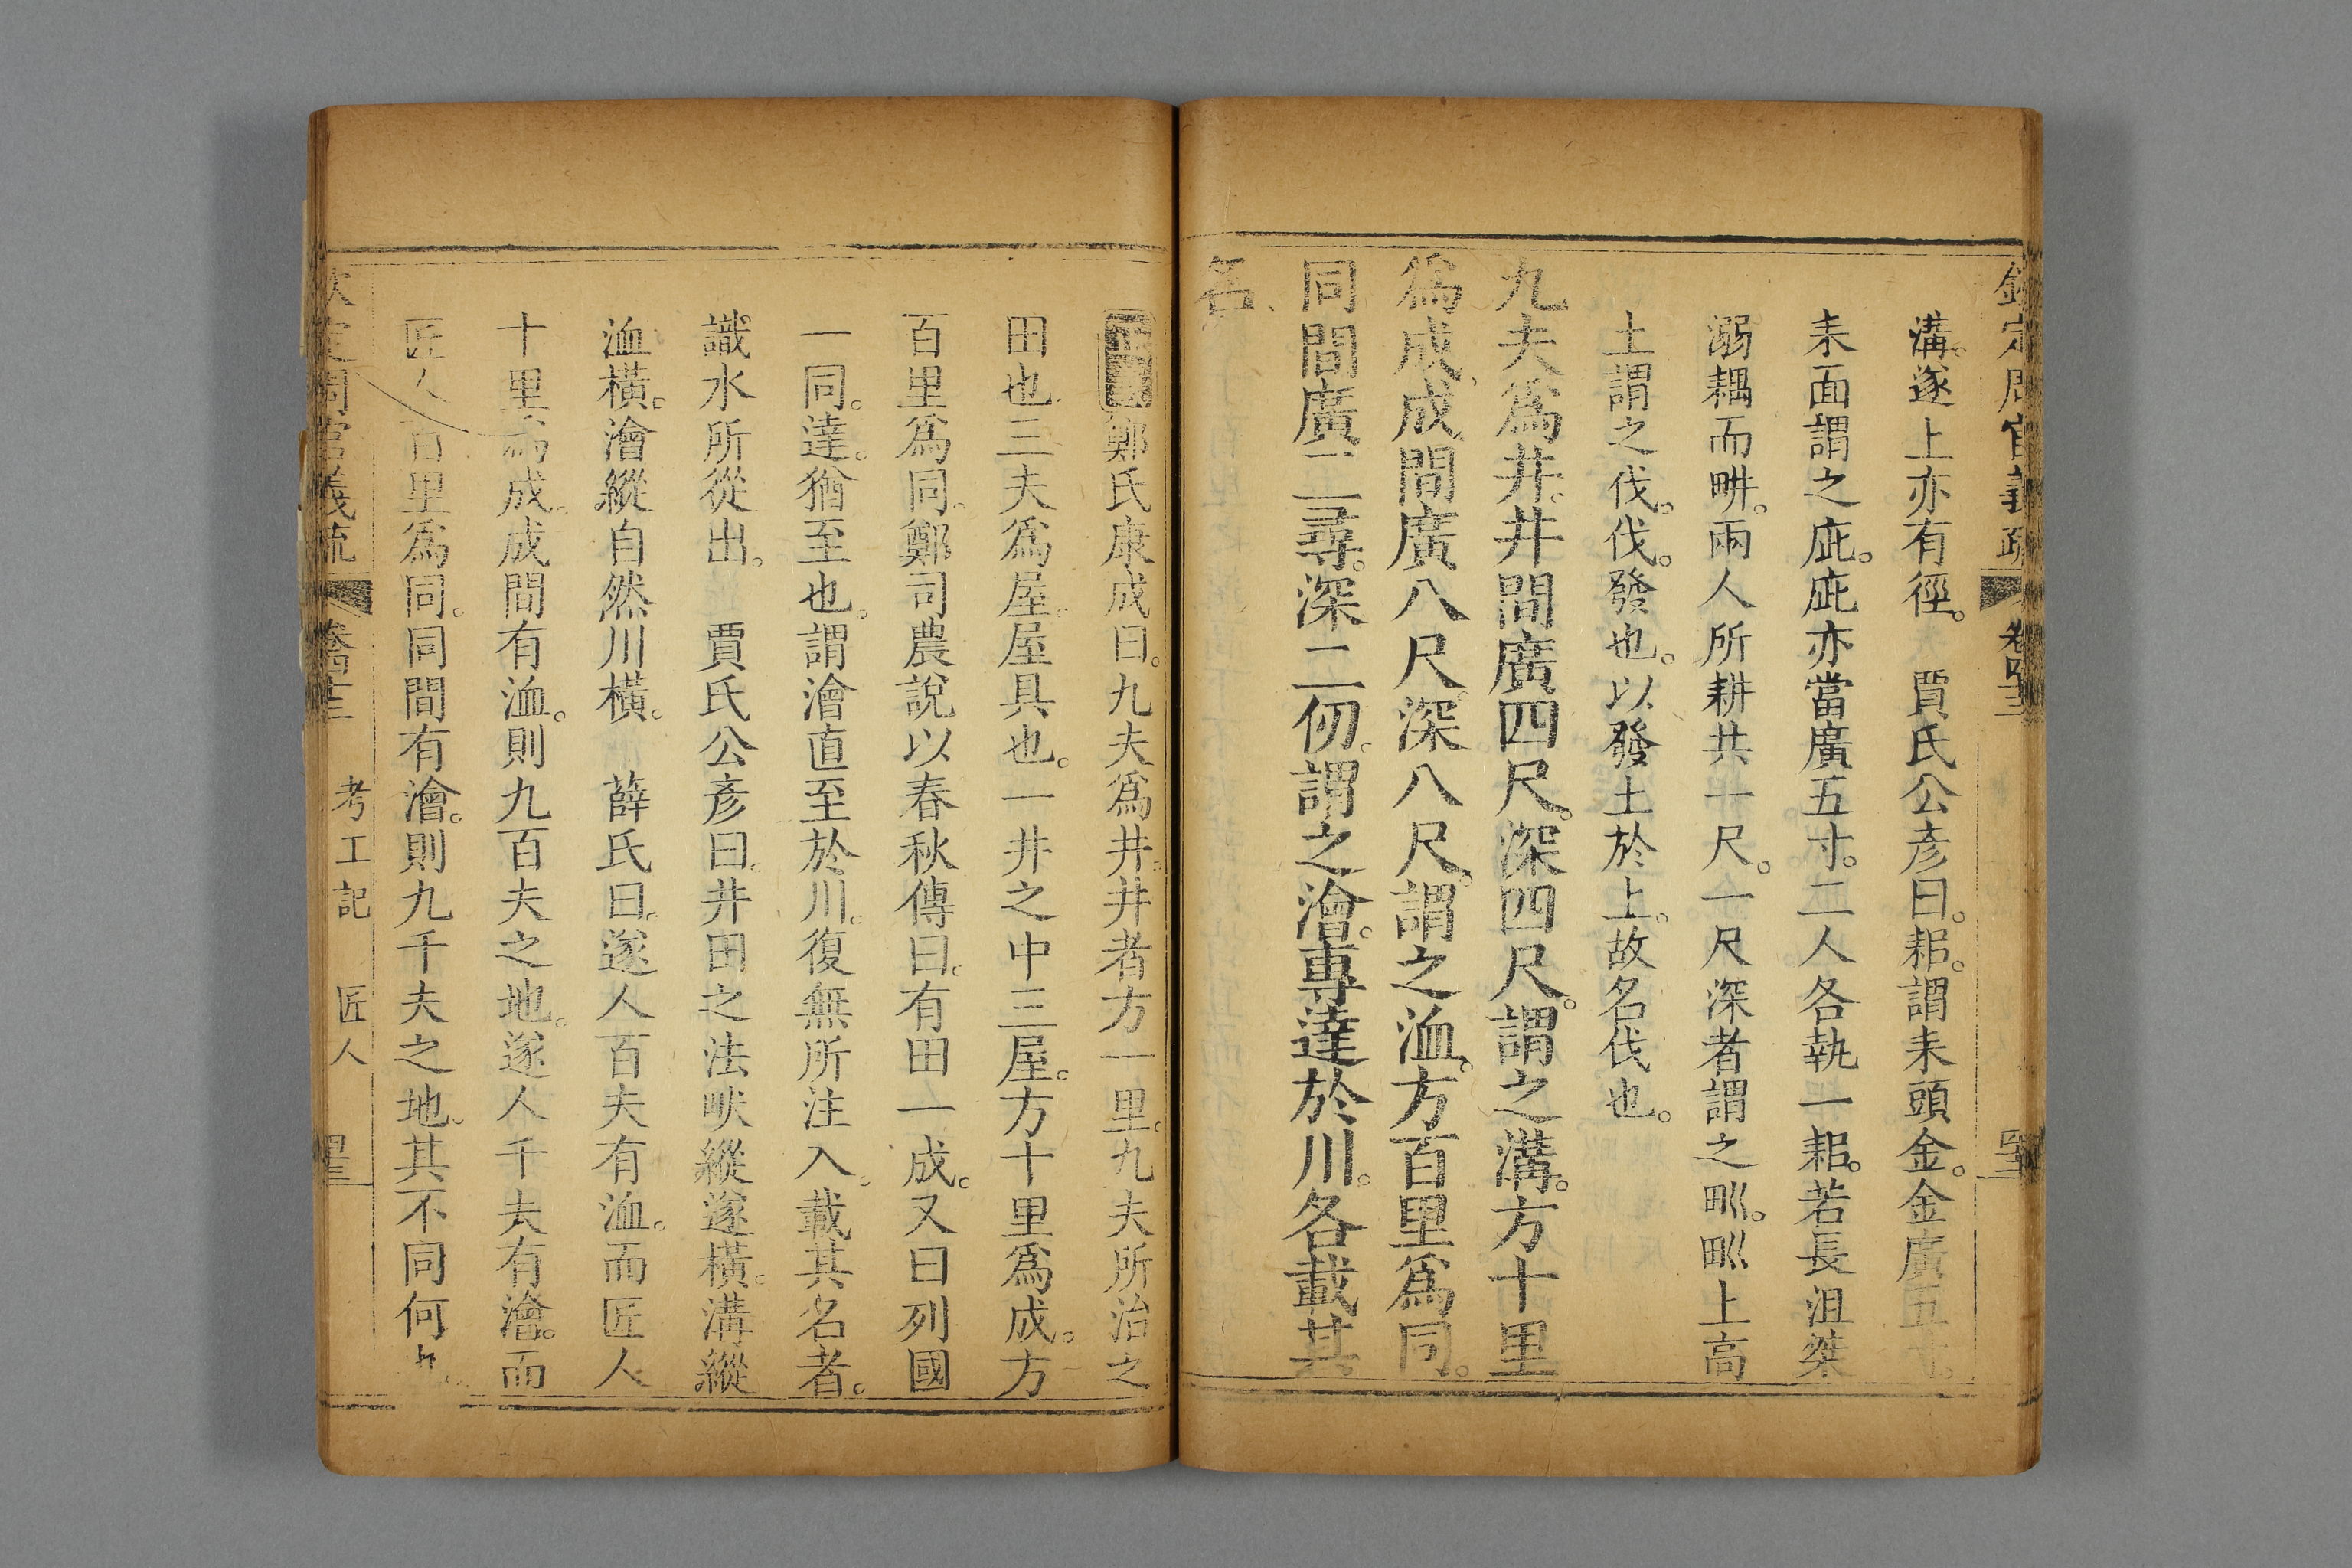 欽定周官義疏 卷四十三
溝。遂上亦有徑。 賈氏公彥曰。耜。謂耒頭金。金廣五寸。
耒面謂之庛。庛亦當廣五寸。二人各執一耜。若長沮桀
溺耦而畊。兩人所耕共一尺。一尺深者謂之甽。甽上高
土謂之伐。伐。發也。以發土於上。故名伐也。
九夫爲井。井間廣四尺。深四尺。謂之溝。方十里
爲成。成間廣八尺。深八尺。謂之洫。方百里爲同。
同間廣二尋。深二仞。謂之澮。專達於川。各載其
名。
鄭氏康成曰。九夫爲井。井者方一里。九夫所治之
田也。三夫爲屋。屋具也。一井之中三屋。方十里爲成。方
百里爲同。鄭司農說以春秋傳曰。有田一成。又曰列國
一同。達。猶至也。謂澮直至於川。復無所注入。載其名者。
識水所從出。 賈氏公彥曰。井田之法畎縱遂橫。溝縱
洫橫。澮縱自然川橫。 薛氏曰。遂人百夫有洫。而匠人
十里爲成。成間有洫。則九百夫之地。遂人千夫有澮。而
匠人百里爲同。同間有澮。則九千夫之地。其不同何
欽定周官義疏 卷四十三 考工記 匠人